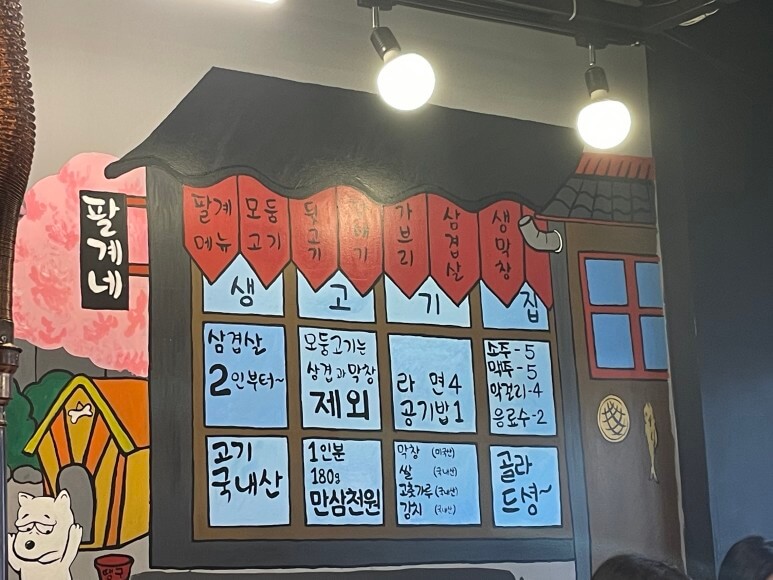 팔계네
팔계
메뉴
모둠
고기
뒷고기
가브리
삼겹살
생막창
생 고 기 집
삼겹살
2인부터~
모둠고기는
삼겹과막창
제외
라면4
공기밥1
소주-5
맥주-5
막걸리-4
음료수-2
고기
국내산
1인분
180g
만삼천원
막창 (미국산)
쌀 (국내산)
고춧가루 (국내산)
김치 (국내산)
골라
드셩~
땡구